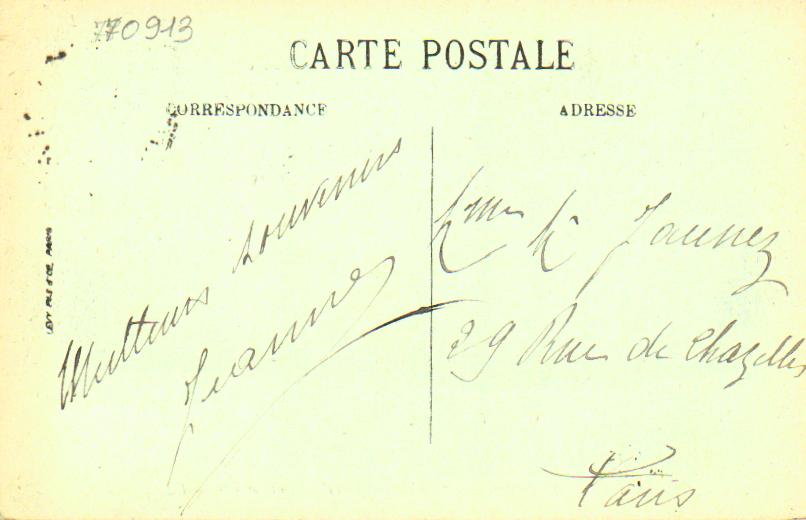 770913
CARTE POSTALE
CORRESPONDANCE
ADRESSE
Meilleurs souvenirs
Jeanne
Mme Jaunez
29 Rue de Chazelles
Paris
LEVY FILS & CIE, PARIS